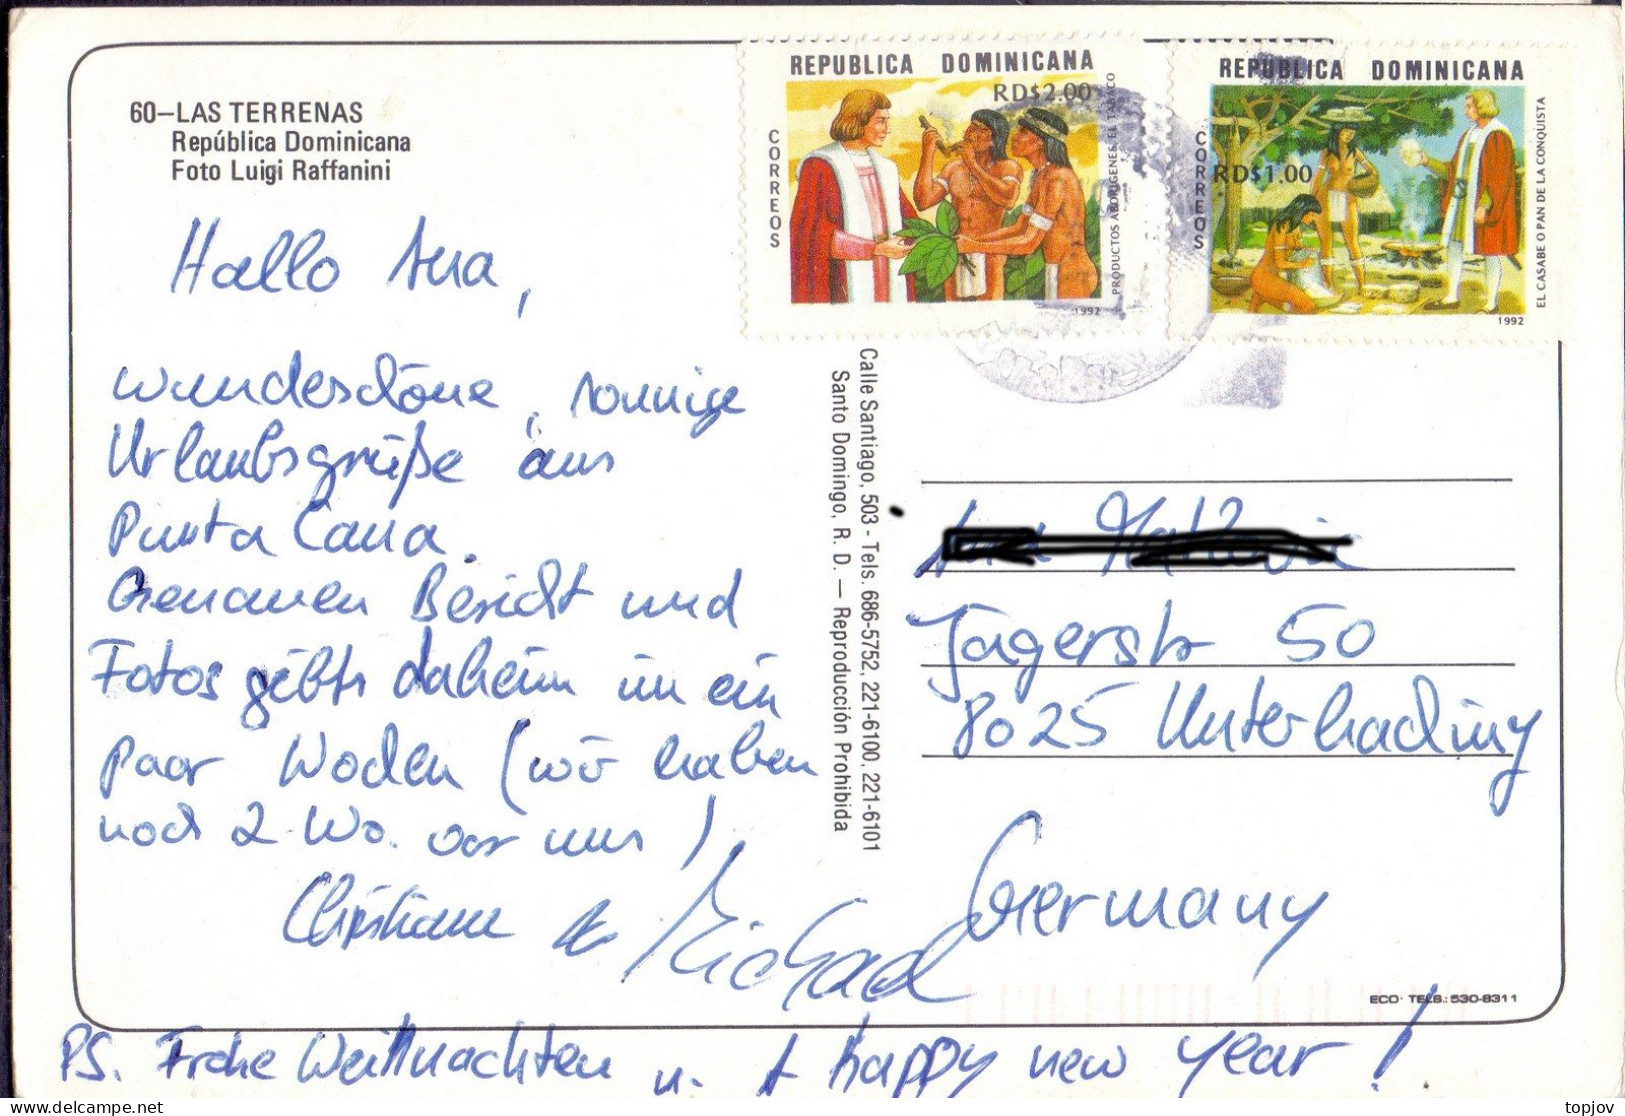 60–LAS TERRENAS
República Dominicana
Foto Luigi Raffanini
REPUBLICA DOMINICANA
RD$2.00
CORREOS
PRODUCTOS ABORIGENES. EL TABACO
1992
REPUBLICA DOMINICANA
RD$1.00
CORREOS
EL CASABE O PAN DE LA CONQUISTA
1992
Hallo Ana,
wunderschöne, sonnige
Urlaubsgrüße aus
Punta Cana.
Genauen Bericht und
Fotos gibts daheim in ein
paar Wochen (wir haben
noch 2 Wo. vor uns)
Christiane & Michael
PS. Frohe Weihnachten u. a happy new year!
Calle Santiago, 503 - Tels. 686-5752, 221-6100, 221-6101
Santo Domingo, R. D. — Reproducción Prohibida
Jägerstr 50
8025 Unterhaching
Germany
ECO· TELS.: 530-8311
topjov